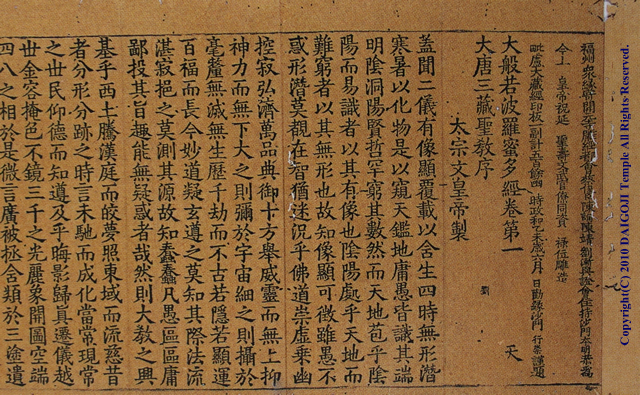 福州衆緣寄開元寺雕經都會蔡俊臣陳詢陳靖劉漸與證會住持沙門本明恭爲
今上 皇帝祝延 聖壽文武官僚同資 祿位雕造
毗盧大藏經印板一副計五百餘函 時政和乙未歲六月 日勸緣沙門 行崇謹題
大般若波羅蜜多經卷第一 天
劉
大唐三藏聖教序
太宗文皇帝製
蓋聞二儀有像顯覆載以含生四時無形潛
寒暑以化物是以窺天鑑地庸愚皆識其端
明陰洞陽賢哲罕窮其數然而天地苞乎陰
陽而易識者以其有像也陰陽處乎天地而
難窮者以其無形也故知像顯可徵雖愚不
惑形潛莫覩在智猶迷況乎佛道崇虛乘幽
控寂弘濟萬品典御十方舉威靈而無上抑
神力而無下大之則彌於宇宙細之則攝於
毫釐無滅無生歷千劫而不古若隱若顯運
百福而長今妙道凝玄遵之莫知其際法流
湛寂挹之莫測其源故知蠢蠢凡愚區區庸
鄙投其旨趣能無疑惑者哉然則大教之興
基乎西土騰漢庭而皎夢照東域而流慈昔
者分形分跡之時言未馳而成化當常現常
之世民仰德而知遵及乎晦影歸真遷儀越
世金容掩色不鏡三千之光麗象開圖空端
四八之相於是微言廣被拯含類於三途遺
Copyright(C) 2010 DAIGOJI Temple All Rights Reserved.